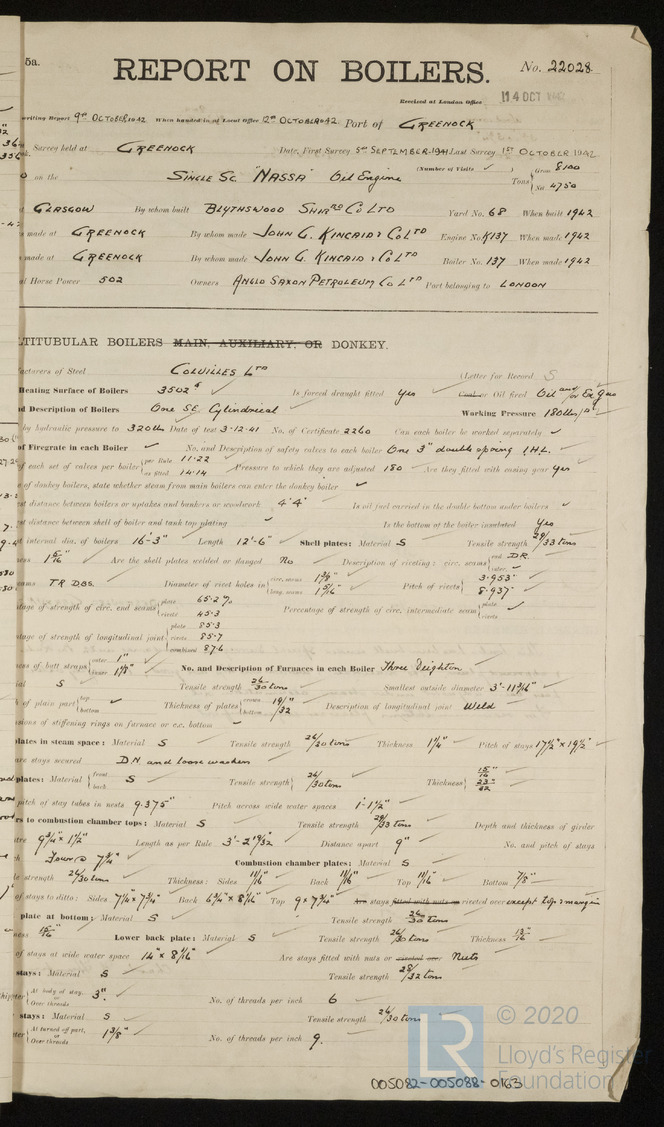 5a.
REPORT ON BOILERS.
No. 22028
Received at London Office 14 OCT 1942
writing Report 9th OCTOBER 1942 When handed in at Local Office 12th OCTOBER 42. Port of GREENOCK
Survey held at GREENOCK Date, First Survey 5th SEPTEMBER 1941 Last Survey 1st OCTOBER 1942
on the SINGLE SC. "NASSA" Oil Engine (Number of Visits ✓) Tons { Gross 8100 Net 4750
GLASGOW By whom built BLYTHSWOOD SHIP Co LTD Yard No. 68 When built 1942
s made at GREENOCK By whom made JOHN G. KINCAID & Co LTD Engine No. K137 When made 1942
made at GREENOCK By whom made JOHN G. KINCAID & Co LTD Boiler No. 137 When made 1942
al Horse Power 502 Owners ANGLO SAXON PETROLEUM Co LTD Port belonging to LONDON
LTITUBULAR BOILERS MAIN, AUXILIARY, OR DONKEY.
facturers of Steel COLVILLES LTD (Letter for Record S
Heating Surface of Boilers 3502 Is forced draught fitted Yes Coal or Oil fired Oil and/or Ex Gas
nd Description of Boilers One SE Cylindrical Working Pressure 180 lbs/
by hydraulic pressure to 320 lbs Date of test 3-12-41 No. of Certificate 2260 Can each boiler be worked separately ✓
of Firegrate in each Boiler ✓ No. and Description of safety valves to each boiler One 3" double spring I.H.L.
of each set of valves per boiler { per Rule 11.22 as fitted 14.14 Pressure to which they are adjusted 180 Are they fitted with easing gear Yes
of donkey boilers, state whether steam from main boilers can enter the donkey boiler ✓
st distance between boilers or uptakes and bunkers or woodwork 4'4" Is oil fuel carried in the double bottom under boilers ✓
st distance between shell of boiler and tank top plating ✓ Is the bottom of the boiler insulated Yes
t internal dia. of boilers 16'-3" Length 12'-6" Shell plates: Material S Tensile strength 29/33 tons
ess 1 5/16" Are the shell plates welded or flanged No Description of riveting: circ. seams { end D.R. inter. ✓
eams TR DBS. Diameter of rivet holes in { circ. seams 1 3/8" long. seams 1 5/16" Pitch of rivets { 3.953" 8.937"
tage of strength of circ. end seams { plate 65.2 % rivets 45.3 Percentage of strength of circ. intermediate seam { plate rivets ✓
tage of strength of longitudinal joint { plate 85.3 rivets 85.7 combined 87.6
ess of butt straps { outer 1" inner 1 1/8" No. and Description of Furnaces in each Boiler Three Deighton
ial S Tensile strength 26/30 tons Smallest outside diameter 3'-11 3/16"
of plain part { top bottom ✓ Thickness of plates { crown bottom 19/32" Description of longitudinal joint Weld
nsions of stiffening rings on furnace or c.c. bottom ✓
plates in steam space: Material S Tensile strength 26/30 tons Thickness 1 1/4" Pitch of stays 17 1/2" x 19 1/2"
are stays secured D.N. and loose washers
plates: Material { front back S Tensile strength { 26/30 tons Thickness { 15/16" 23/32"
pitch of stay tubes in nests 9.375" Pitch across wide water spaces 1'-1 1/2"
rs to combustion chamber tops: Material S Tensile strength 29/33 tons Depth and thickness of girder
tre 9 3/4" x 1 1/2" Length as per Rule 3'-2 19/32 Distance apart 9" No. and pitch of stays
h Four @ 7 3/4" Combustion chamber plates: Material S
le strength 26/30 tons Thickness: Sides 11/16" Back 11/16" Top 11/16" Bottom 7/8"
of stays to ditto: Sides 7 1/4" x 7 3/4" Back 6 3/4" x 8 1/16" Top 9 x 7 3/4" Are stays fitted with nuts or riveted over except top & margin
plate at bottom: Material S Tensile strength 26/30 tons
ness 15/16" Lower back plate: Material S Tensile strength 26/30 tons Thickness 13/16"
of stays at wide water space 14" x 8 1/16" Are stays fitted with nuts or riveted over Nuts
stays: Material S Tensile strength 28/32 tons
ter { At body of stay, or Over threads 3". No. of threads per inch 6
stays: Material S Tensile strength 26/30 tons
ter { At turned off part, or Over threads 1 3/8" No. of threads per inch 9.
LR © 2020
Lloyd's Register
Foundation
005082-005088-0163